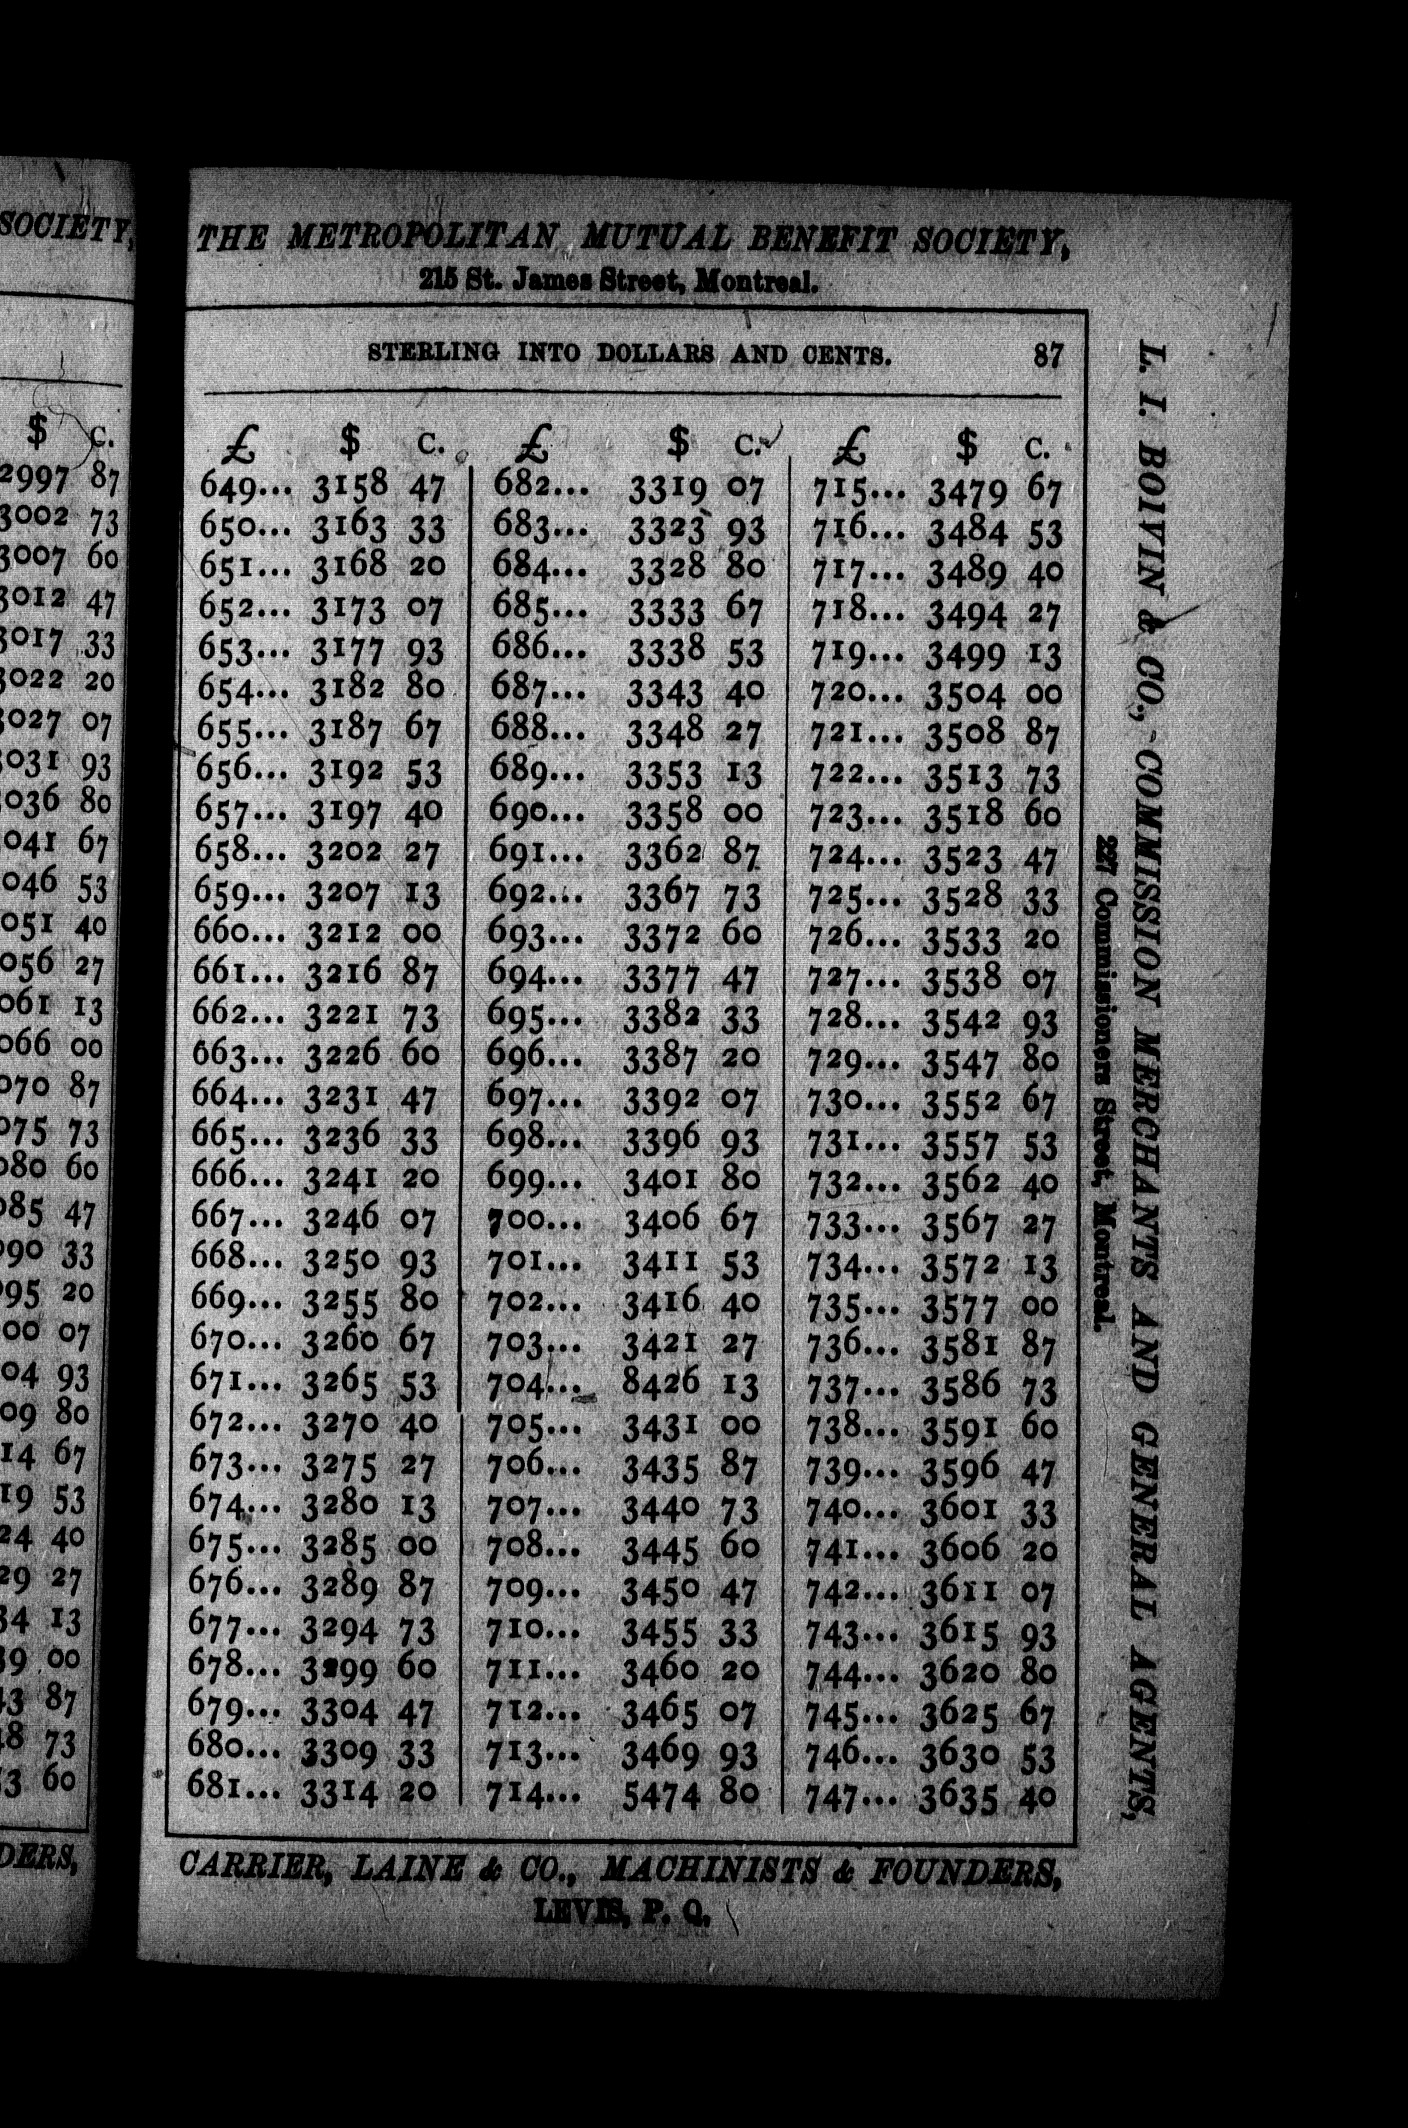 SOCIETY,
$ c.
2997 87
3002 73
3007 60
3012 47
3017 33
3022 20
3027 07
3031 93
036 80
041 67
046 53
051 40
056 27
061 13
066 00
070 87
075 73
080 60
085 47
90 33
95 20
00 07
04 93
09 80
14 67
19 53
24 40
29 27
34 13
39 00
43 87
48 73
53 60
DERS,
THE METROPOLITAN MUTUAL BENEFIT SOCIETY,
215 St. James Street, Montreal.
STERLING INTO DOLLARS AND CENTS. 87
£ $ c. £ $ c. £ $ c.
649... 3158 47 682... 3319 07 715... 3479 67
650... 3163 33 683... 3323 93 716... 3484 53
651... 3168 20 684... 3328 80 717... 3489 40
652... 3173 07 685... 3333 67 718... 3494 27
653... 3177 93 686... 3338 53 719... 3499 13
654... 3182 80 687... 3343 40 720... 3504 00
655... 3187 67 688... 3348 27 721... 3508 87
656... 3192 53 689... 3353 13 722... 3513 73
657... 3197 40 690... 3358 00 723... 3518 60
658... 3202 27 691... 3362 87 724... 3523 47
659... 3207 13 692... 3367 73 725... 3528 33
660... 3212 00 693... 3372 60 726... 3533 20
661... 3216 87 694... 3377 47 727... 3538 07
662... 3221 73 695... 3382 33 728... 3542 93
663... 3226 60 696... 3387 20 729... 3547 80
664... 3231 47 697... 3392 07 730... 3552 67
665... 3236 33 698... 3396 93 731... 3557 53
666... 3241 20 699... 3401 80 732... 3562 40
667... 3246 07 700... 3406 67 733... 3567 27
668... 3250 93 701... 3411 53 734... 3572 13
669... 3255 80 702... 3416 40 735... 3577 00
670... 3260 67 703... 3421 27 736... 3581 87
671... 3265 53 704... 8426 13 737... 3586 73
672... 3270 40 705... 3431 00 738... 3591 60
673... 3275 27 706... 3435 87 739... 3596 47
674... 3280 13 707... 3440 73 740... 3601 33
675... 3285 00 708... 3445 60 741... 3606 20
676... 3289 87 709... 3450 47 742... 3611 07
677... 3294 73 710... 3455 33 743... 3615 93
678... 3299 60 711... 3460 20 744... 3620 80
679... 3304 47 712... 3465 07 745... 3625 67
680... 3309 33 713... 3469 93 746... 3630 53
681... 3314 20 714... 5474 80 747... 3635 40
CARRIER, LAINE & CO., MACHINISTS & FOUNDERS,
LEVIS, P. Q.
L. I. BOIVIN & CO., COMMISSION MERCHANTS AND GENERAL AGENTS,
227 Commissioners Street, Montreal.